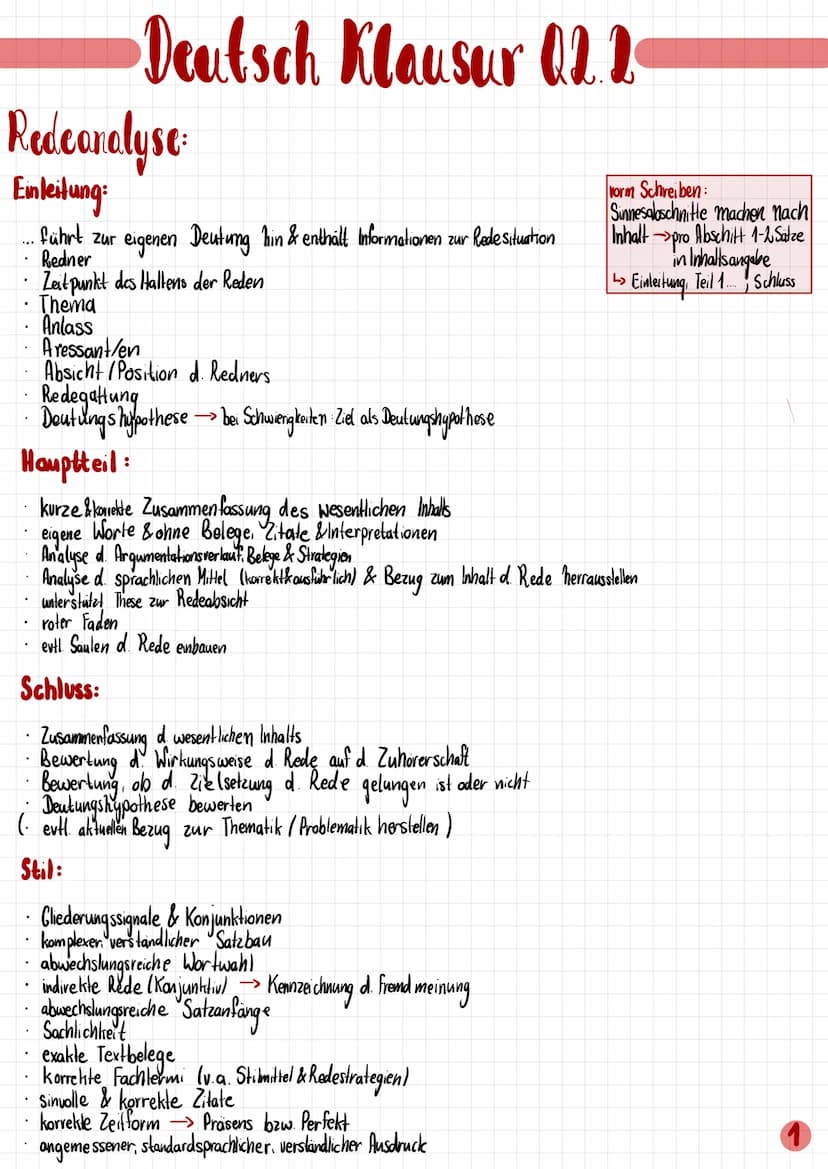 Deutsch Klausur Q2.2
Redeanalyse:
Einleitung:
... führt zur eigenen Deutung hin & enthält Informationen zur Redesituation
· Redner
· Zeitpunkt des Haltens der Reden
· Thema
· Anlass
· Aressant/en
· Absicht / Position d. Redners
· Redegattung
· Deutungshypothese → bei Schwierigkeiten: Ziel als Deutungshypothese
vorm Schreiben:
Sinnesabschnitte machen nach
Inhalt → pro Abschitt 1-2 Sätze
in Inhaltsangabe
↳ Einleitung, Teil 1 ... , Schluss
Hauptteil:
· kurze & korrekte Zusammenfassung des wesentlichen Inhalts
· eigene Worte & ohne Belege, Zitate & Interpretationen
· Analyse d. Argumentationsverlauf, Belege & Strategien
· Analyse d. sprachlichen Mittel (korrekt & ausführlich) & Bezug zum Inhalt d. Rede herrausstellen
· unterstützt These zur Redeabsicht
· roter Faden
· evtl. Säulen d. Rede einbauen
Schluss:
· Zusammenfassung d. wesentlichen Inhalts
· Bewertung d. Wirkungsweise d. Rede auf d. Zuhörerschaft
· Bewertung, ob d. Zielsetzung d. Rede gelungen ist oder nicht
· Deutungshypothese bewerten
(· evtl. aktuellen Bezug zur Thematik / Problematik herstellen)
Stil:
· Gliederungssignale & Konjunktionen
· komplexer, verständlicher Satzbau
· abwechslungsreiche Wortwahl
· indirekte Rede (Konjunktiv) → Kennzeichnung d. Fremdmeinung
· abwechslungsreiche Satzanfänge
· Sachlichkeit
· exakte Textbelege
· korrekte Fachtermi (v.a. Stilmittel & Redestrategien)
· sinvolle & korrekte Zitate
· korrekte Zeitform → Präsens bzw. Perfekt
· angemessener, standardsprachlicher, verständlicher Ausdruck
1